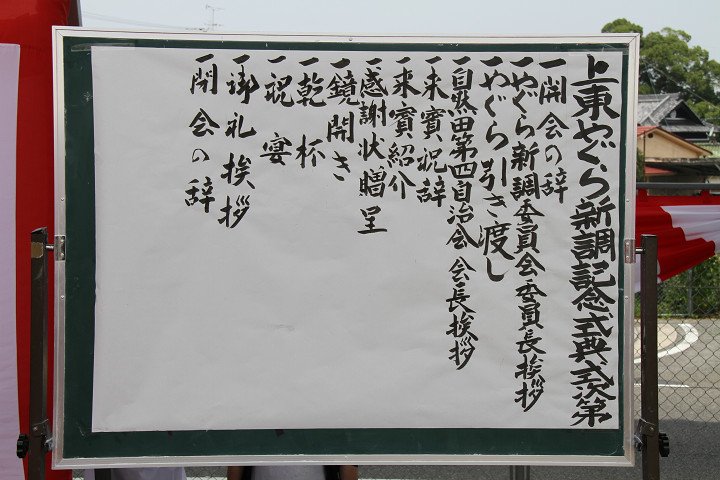 上東やぐら新調記念式典式次第
一開会の辞
一やぐら新調委員会委員長挨拶
一やぐら引き渡し
一自然田第四自治会会長挨拶
一来賓祝辞
一来賓紹介
一感謝状贈呈
一鏡開き
一乾杯
一祝宴
一御礼挨拶
一閉会の辞